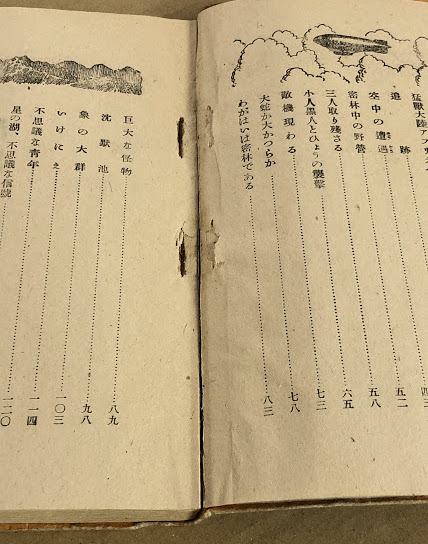 猛獣大陸アフリカ
追跡 五二
空中の遭遇 五八
密林中の野営 六五
三人取り残さる 七三
小人黒人とひょうの襲撃 七八
敵機現わる
大蛇か大かつらか 八三
わがはいは密林である
巨大な怪物 八九
沈獣池 九八
象の大群 一〇三
いけにえ 一一四
不思議な青年 一二〇
星の湖、不思議な信号